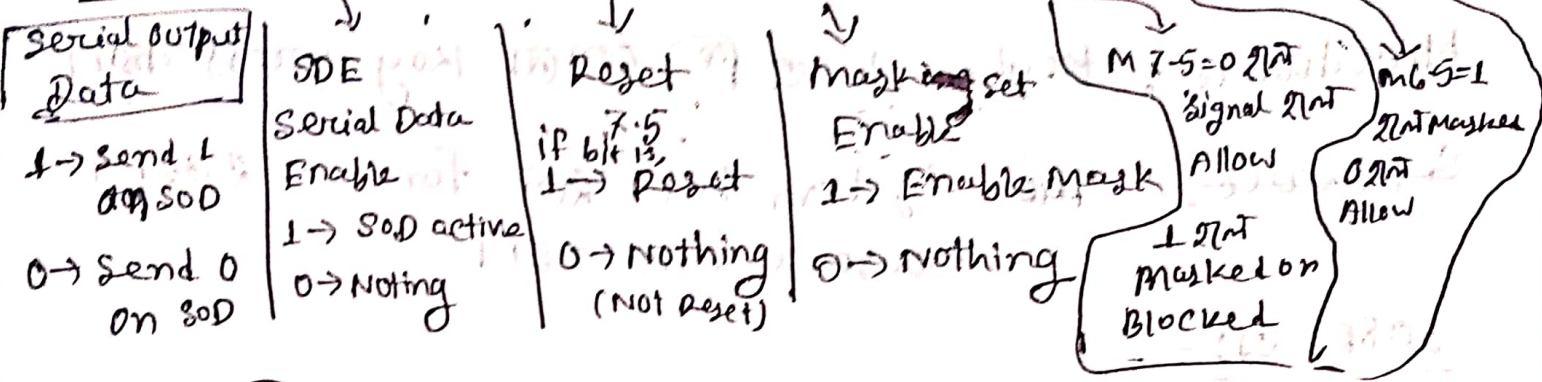 Serial Output
Data
1→ Send 1
on SOD
0→ Send 0
on SOD
SDE
Serial Data
Enable
1→ SOD active
0→ Noting
Reset
7.5
if bit is,
1→ Reset
0→ Nothing
(Not Reset)
Masking set
Enable
1→ Enable Mask
0→ Nothing
M 7-5=0 INT
Signal INT
Allow
1 INT
Masked or
Blocked
M6-5=1
INT Masked
0 INT
Allow